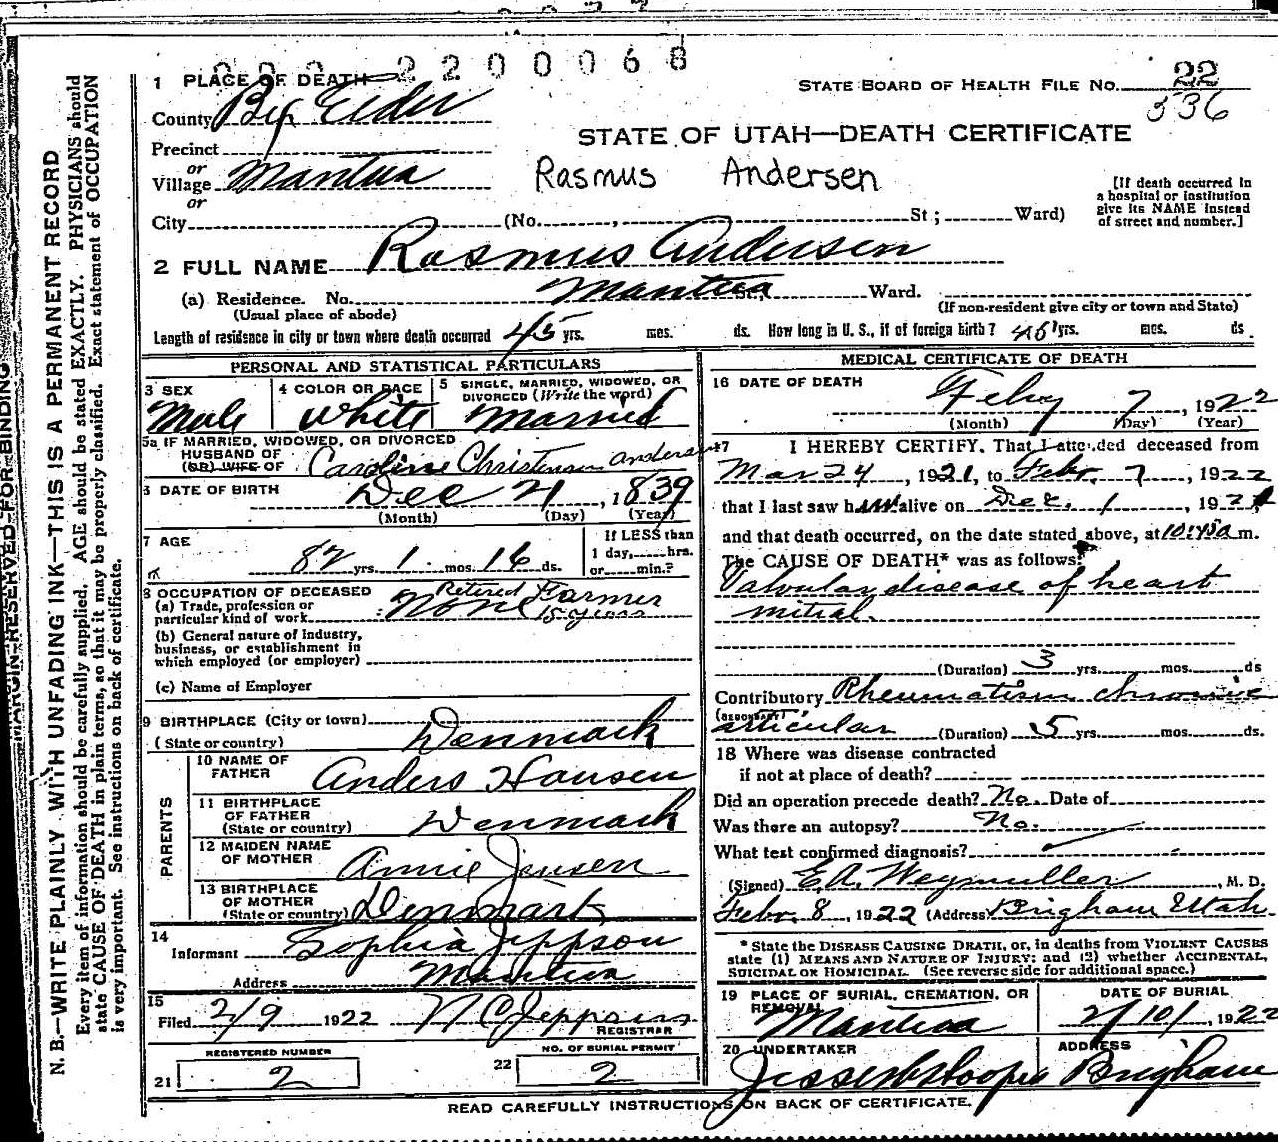 2200068
1 PLACE OF DEATH
STATE BOARD OF HEALTH FILE No. 22
336
County Box Elder
STATE OF UTAH—DEATH CERTIFICATE
Precinct
or
Village Mantua
Rasmus Andersen
or
City (No. , St ; Ward)
[If death occurred in
a hospital or institution
give its NAME instead
of street and number.]
2 FULL NAME Rasmus Andersen
(a) Residence. No. Mantua St., Ward.
(Usual place of abode)
(If non-resident give city or town and State)
Length of residence in city or town where death occurred 45 yrs. mos. ds. How long in U. S., if of foreign birth? 45 yrs. mos. ds.
PERSONAL AND STATISTICAL PARTICULARS
3 SEX
Male
4 COLOR OR RACE
White
5 SINGLE, MARRIED, WIDOWED, OR
DIVORCED (Write the word)
Married
5a IF MARRIED, WIDOWED, OR DIVORCED
HUSBAND OF
(OR) WIFE OF Caroline Christensen Andersen
6 DATE OF BIRTH Dec 21, 1839
(Month) (Day) (Year)
7 AGE
82 yrs. 1 mos. 16 ds.
If LESS than
1 day, hrs.
or min.?
8 OCCUPATION OF DECEASED
(a) Trade, profession or
particular kind of work None Retired Farmer
15 years
(b) General nature of industry,
business, or establishment in
which employed (or employer)
(c) Name of Employer
9 BIRTHPLACE (City or town)
(State or country) Denmark
PARENTS
10 NAME OF
FATHER Anders Hansen
11 BIRTHPLACE
OF FATHER
(State or country) Denmark
12 MAIDEN NAME
OF MOTHER Annie Jensen
13 BIRTHPLACE
OF MOTHER
(State or country) Denmark
14
Informant Sophia Jeppson
Address Mantua
15
Filed 2/9 1922 N C Jeppson
REGISTRAR
REGISTERED NUMBER
21 2
NO. OF BURIAL PERMIT
22 2
MEDICAL CERTIFICATE OF DEATH
16 DATE OF DEATH
Feby 7, 1922
(Month) (Day) (Year)
17 I HEREBY CERTIFY, That I attended deceased from
Mar 24, 1921, to Febr. 7, 1922
that I last saw him alive on Dec. 1, 1921,
and that death occurred, on the date stated above, at m.
The CAUSE OF DEATH* was as follows:
Valvular disease of heart
mitral.
(Duration) 3 yrs. mos. ds
Contributory Rheumatism chronic
(SECONDARY)
articular (Duration) 5 yrs. mos. ds.
18 Where was disease contracted
if not at place of death?
Did an operation precede death? No. Date of
Was there an autopsy? No.
What test confirmed diagnosis?
(Signed) E.A. Weymuller, M. D.
Febr. 8, 1922 (Address) Brigham Utah.
* State the DISEASE CAUSING DEATH, or, in deaths from VIOLENT CAUSES
state (1) MEANS AND NATURE OF INJURY; and (2) whether ACCIDENTAL,
SUICIDAL OR HOMICIDAL. (See reverse side for additional space.)
19 PLACE OF BURIAL, CREMATION, OR
REMOVAL
Mantua
DATE OF BURIAL
2/10/, 1922
20 UNDERTAKER
ADDRESS
Brigham
READ CAREFULLY INSTRUCTIONS ON BACK OF CERTIFICATE.
MARGIN RESERVED FOR BINDING
N. B.—WRITE PLAINLY WITH UNFADING INK—THIS IS A PERMANENT RECORD
Every item of information should be carefully supplied. AGE should be stated EXACTLY. PHYSICIANS should
state CAUSE OF DEATH in plain terms, so that it may be properly classified. Exact statement of OCCUPATION
is very important. See instructions on back of certificate.